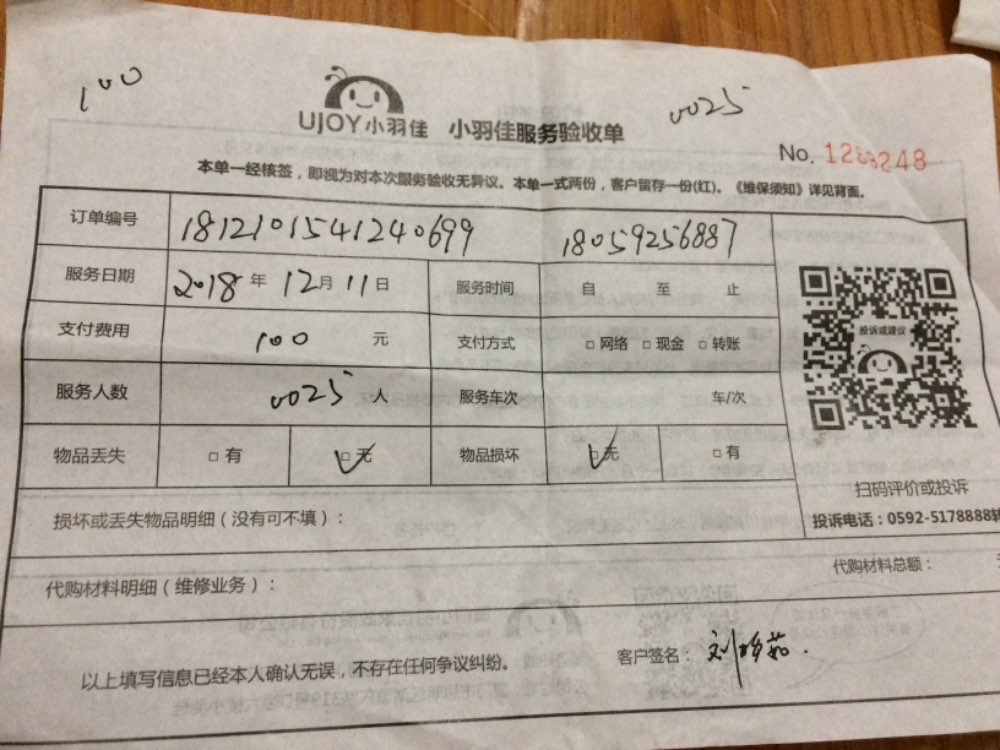 100
0025
UJOY小羽佳 小羽佳服务验收单
No. 1269248
本单一经核签，即视为对本次服务验收无异议。本单一式两份，客户留存一份(红)。《维保须知》详见背面。
订单编号 1812101541240699 18059256887
服务日期 2018年12月11日 服务时间 自 至 止
投诉或建议
支付费用 100 元 支付方式 □网络 □现金 □转账
服务人数 0025 人 服务车次 车/次
物品丢失 □有 □无 物品损坏 □无 □有
扫码评价或投诉
损坏或丢失物品明细（没有可不填）：
投诉电话：0592-5178888转
代购材料明细（维修业务）：
代购材料总额：
以上填写信息已经本人确认无误，不存在任何争议纠纷。
客户签名：刘珍茹.